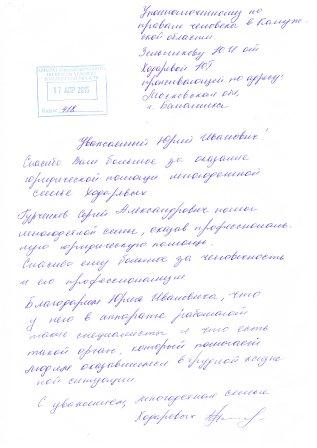 Уполномоченному по
правам человека в Калуж-
ской области
Зельникову Ю И от
Ходаревой
проживающей по адресу:
Московская обл,
г. Балашиха
17 АПР 2015
Уважаемый Юрий Иванович!
Спасибо Вам большое за оказание
юридической помощи многодетной
семье Ходаревых.
Сергей Александрович помог
многодетной семье, оказав профессиональ-
ную юридическую помощь.
Спасибо ему большое за человечность
и его профессионализм
Благодарим Юрия Ивановича, что
у него в аппарате работают
такие специалисты и что есть
такой орган, который помогает
людям оказавшимся в трудной жизнен-
ной ситуации
С уважением, многодетная семья
Ходаревых